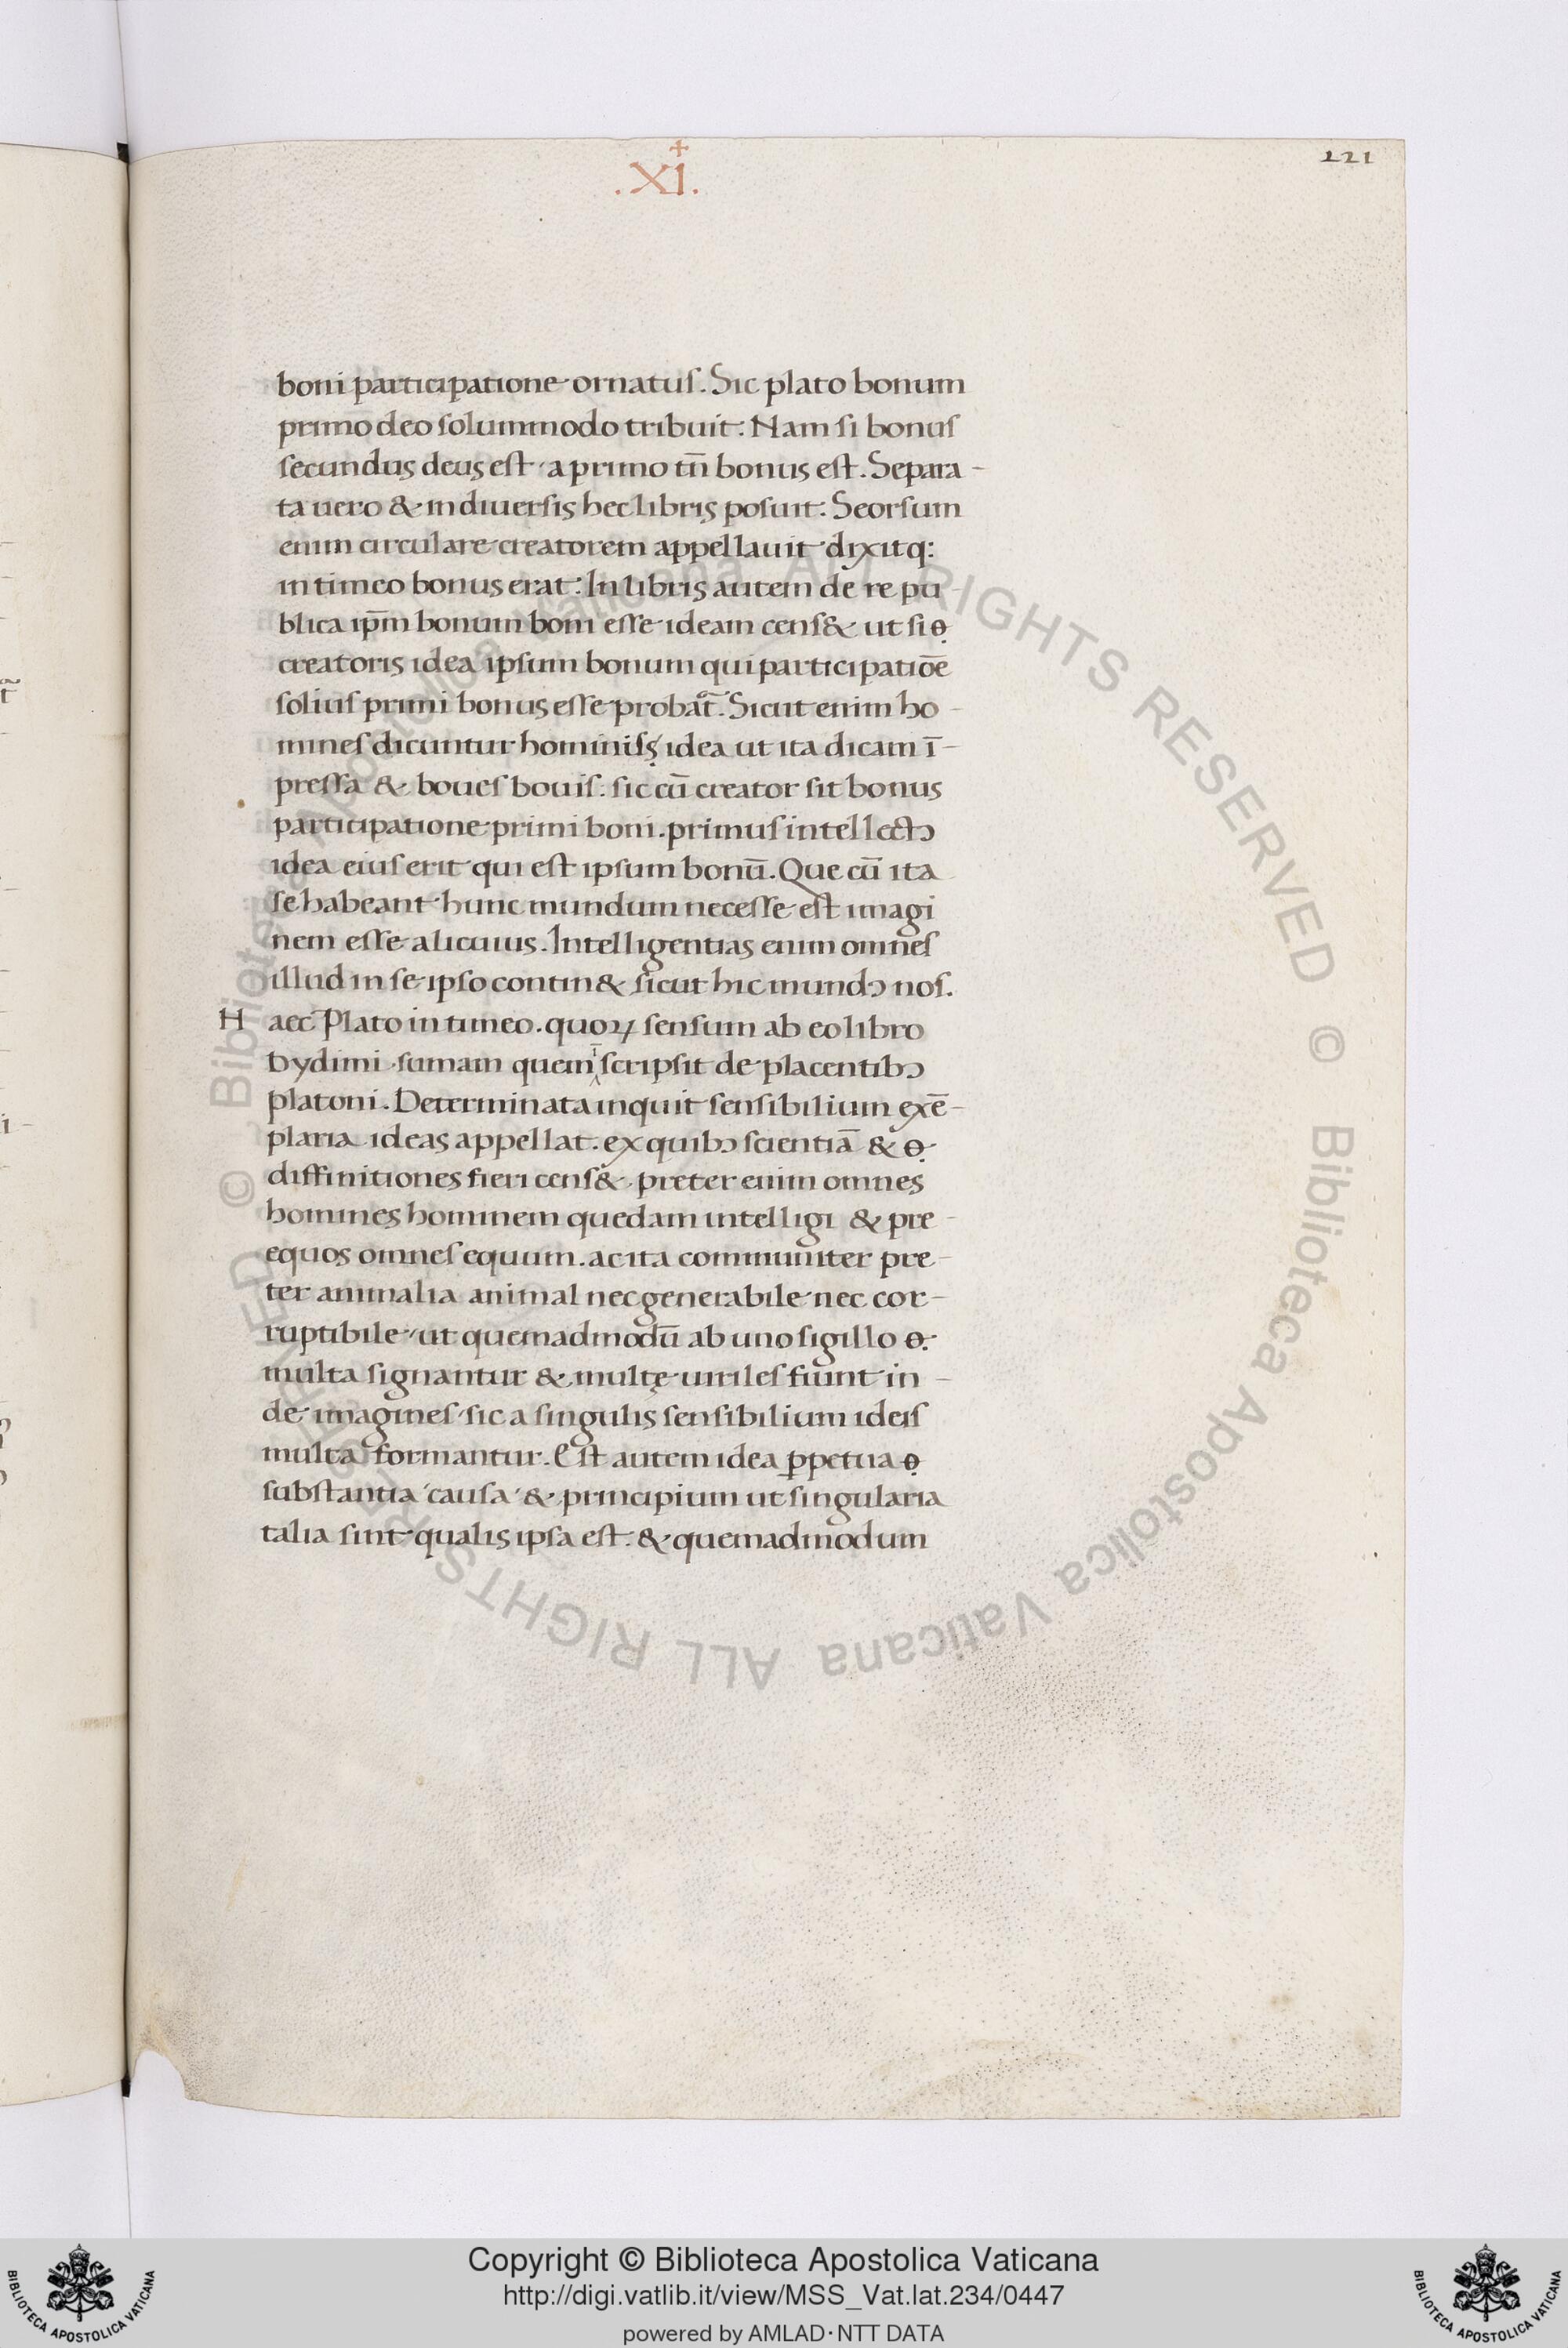 .XI.
221
boni participatione ornatus. Sic plato bonum
primo deo solummodo tribuit: Nam si bonus
secundus deus est a primo tn̄ bonus est. Separa-
ta uero & in diuersis hec libris posuit: Seorsum
enim circulare creatorem appellauit dixitq:
in timeo bonus erat: In libris autem de re pu-
blica ip̄m bonum boni esse ideam cens& ut si
creatoris idea ipsum bonum qui participatiōe
solius primi bonus esse probat̄. Sicut enim ho-
mines dicuntur hominis idea ut ita dicam ī-
pressa & boues bouis: sic cū creator sit bonus
participatione primi boni. primus intellectꝰ
idea eius erit qui est ipsum bonū. Que cū ita
se habeant hunc mundum necesse est imagi
nem esse alicuius. Intelligentias enim omnes
illud in se ipso contin& sicut hic mundꝰ nos.
Haec Plato in timeo. quoꝝ sensum ab eo libro
Dydimi sumam quem ī scripsit de placentibꝰ
platoni. Determinata inquit sensibilium exē-
plaria ideas appellat. ex quibꝰ scientiā &
diffinitiones fieri cens&. preter enim omnes
homines hominem quedam intelligi & pre-
equos omnes equum. ac ita communiter pre-
ter animalia animal nec generabile nec cor-
ruptibile ut quemadmodū ab uno sigillo
multa signantur & multę uiriles fiunt in-
de imagines sic a singulis sensibilium ideis
multa formantur. Est autem idea ꝑpetua
substantia causa & principium ut singularia
talia sint qualis ipsa est. & quemadmodum
© Biblioteca Apostolica Vaticana ALL RIGHTS RESERVED © Biblioteca Apostolica Vaticana ALL RIGHTS RESERVED
BIBLIOTECA APOSTOLICA VATICANA
Copyright © Biblioteca Apostolica Vaticana
http://digi.vatlib.it/view/MSS_Vat.lat.234/0447
powered by AMLAD·NTT DATA
BIBLIOTECA APOSTOLICA VATICANA